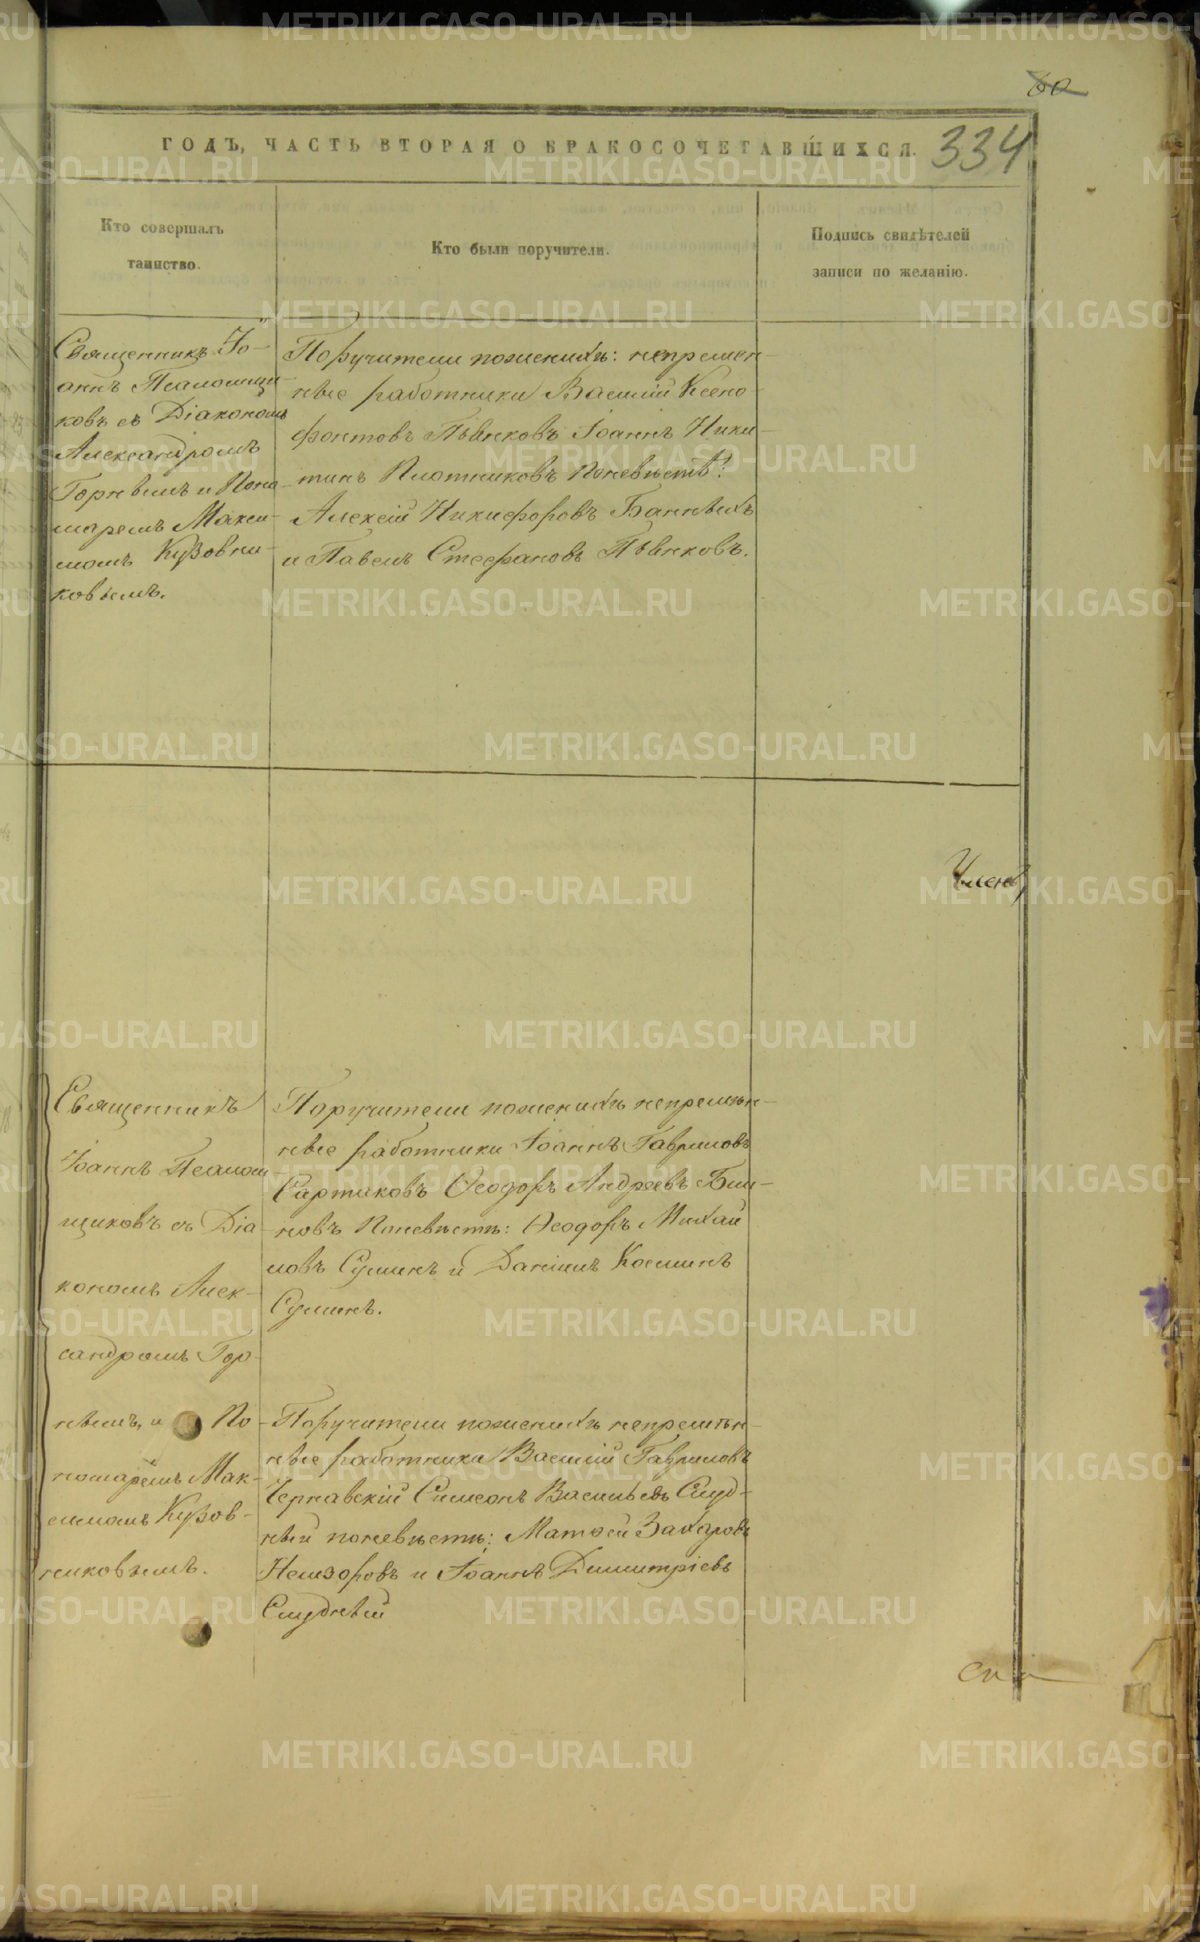 60
ГОДЪ, ЧАСТЬ ВТОРАЯ О БРАКОСОЧЕТАВШИХСЯ.
334
Кто совершалъ
таинство.
Кто были поручители.
Подпись свидѣтелей
записи по желанію.
Священникъ Іо-
аннъ Псаломщи-
ковъ съ Діакономъ
Александромъ
Горнымъ и Поно-
маремъ Макси-
момъ Кузовни-
ковымъ.
Поручители пожениху: непремен-
ные работники Василій Ксено-
фонтовъ Пьянковъ Іоаннъ Ники-
тинъ Плотниковъ Поневѣстѣ:
Алексій Никифоровъ Банныхъ
и Павелъ Стефановъ Пьянковъ.
Членъ
Священникъ
Іоаннъ Псалом-
щиковъ съ Діа-
кономъ Алек-
сандромъ Гор-
нымъ, и По-
номарёмъ Мак-
симомъ Кузов-
никовымъ.
Поручители пожениху непремѣн-
ные работники Іоаннъ Гавриловъ
Сартаковъ Ѳеодоръ Андреевъ Бли-
новъ Поневѣстѣ: Ѳеодоръ Михай
ловъ Суминъ и Даніилъ Косминъ
Суминъ.
Поручители пожениху непремѣн-
ные работники Василій Гавриловъ
Чернавскій Симеонъ Васильевъ Смуд-
ный поневѣстѣ: Матѳей Захаровъ
Немзоровъ и Іоаннъ Димитріевъ
Смудный
METRIKI.GASO-URAL.RU